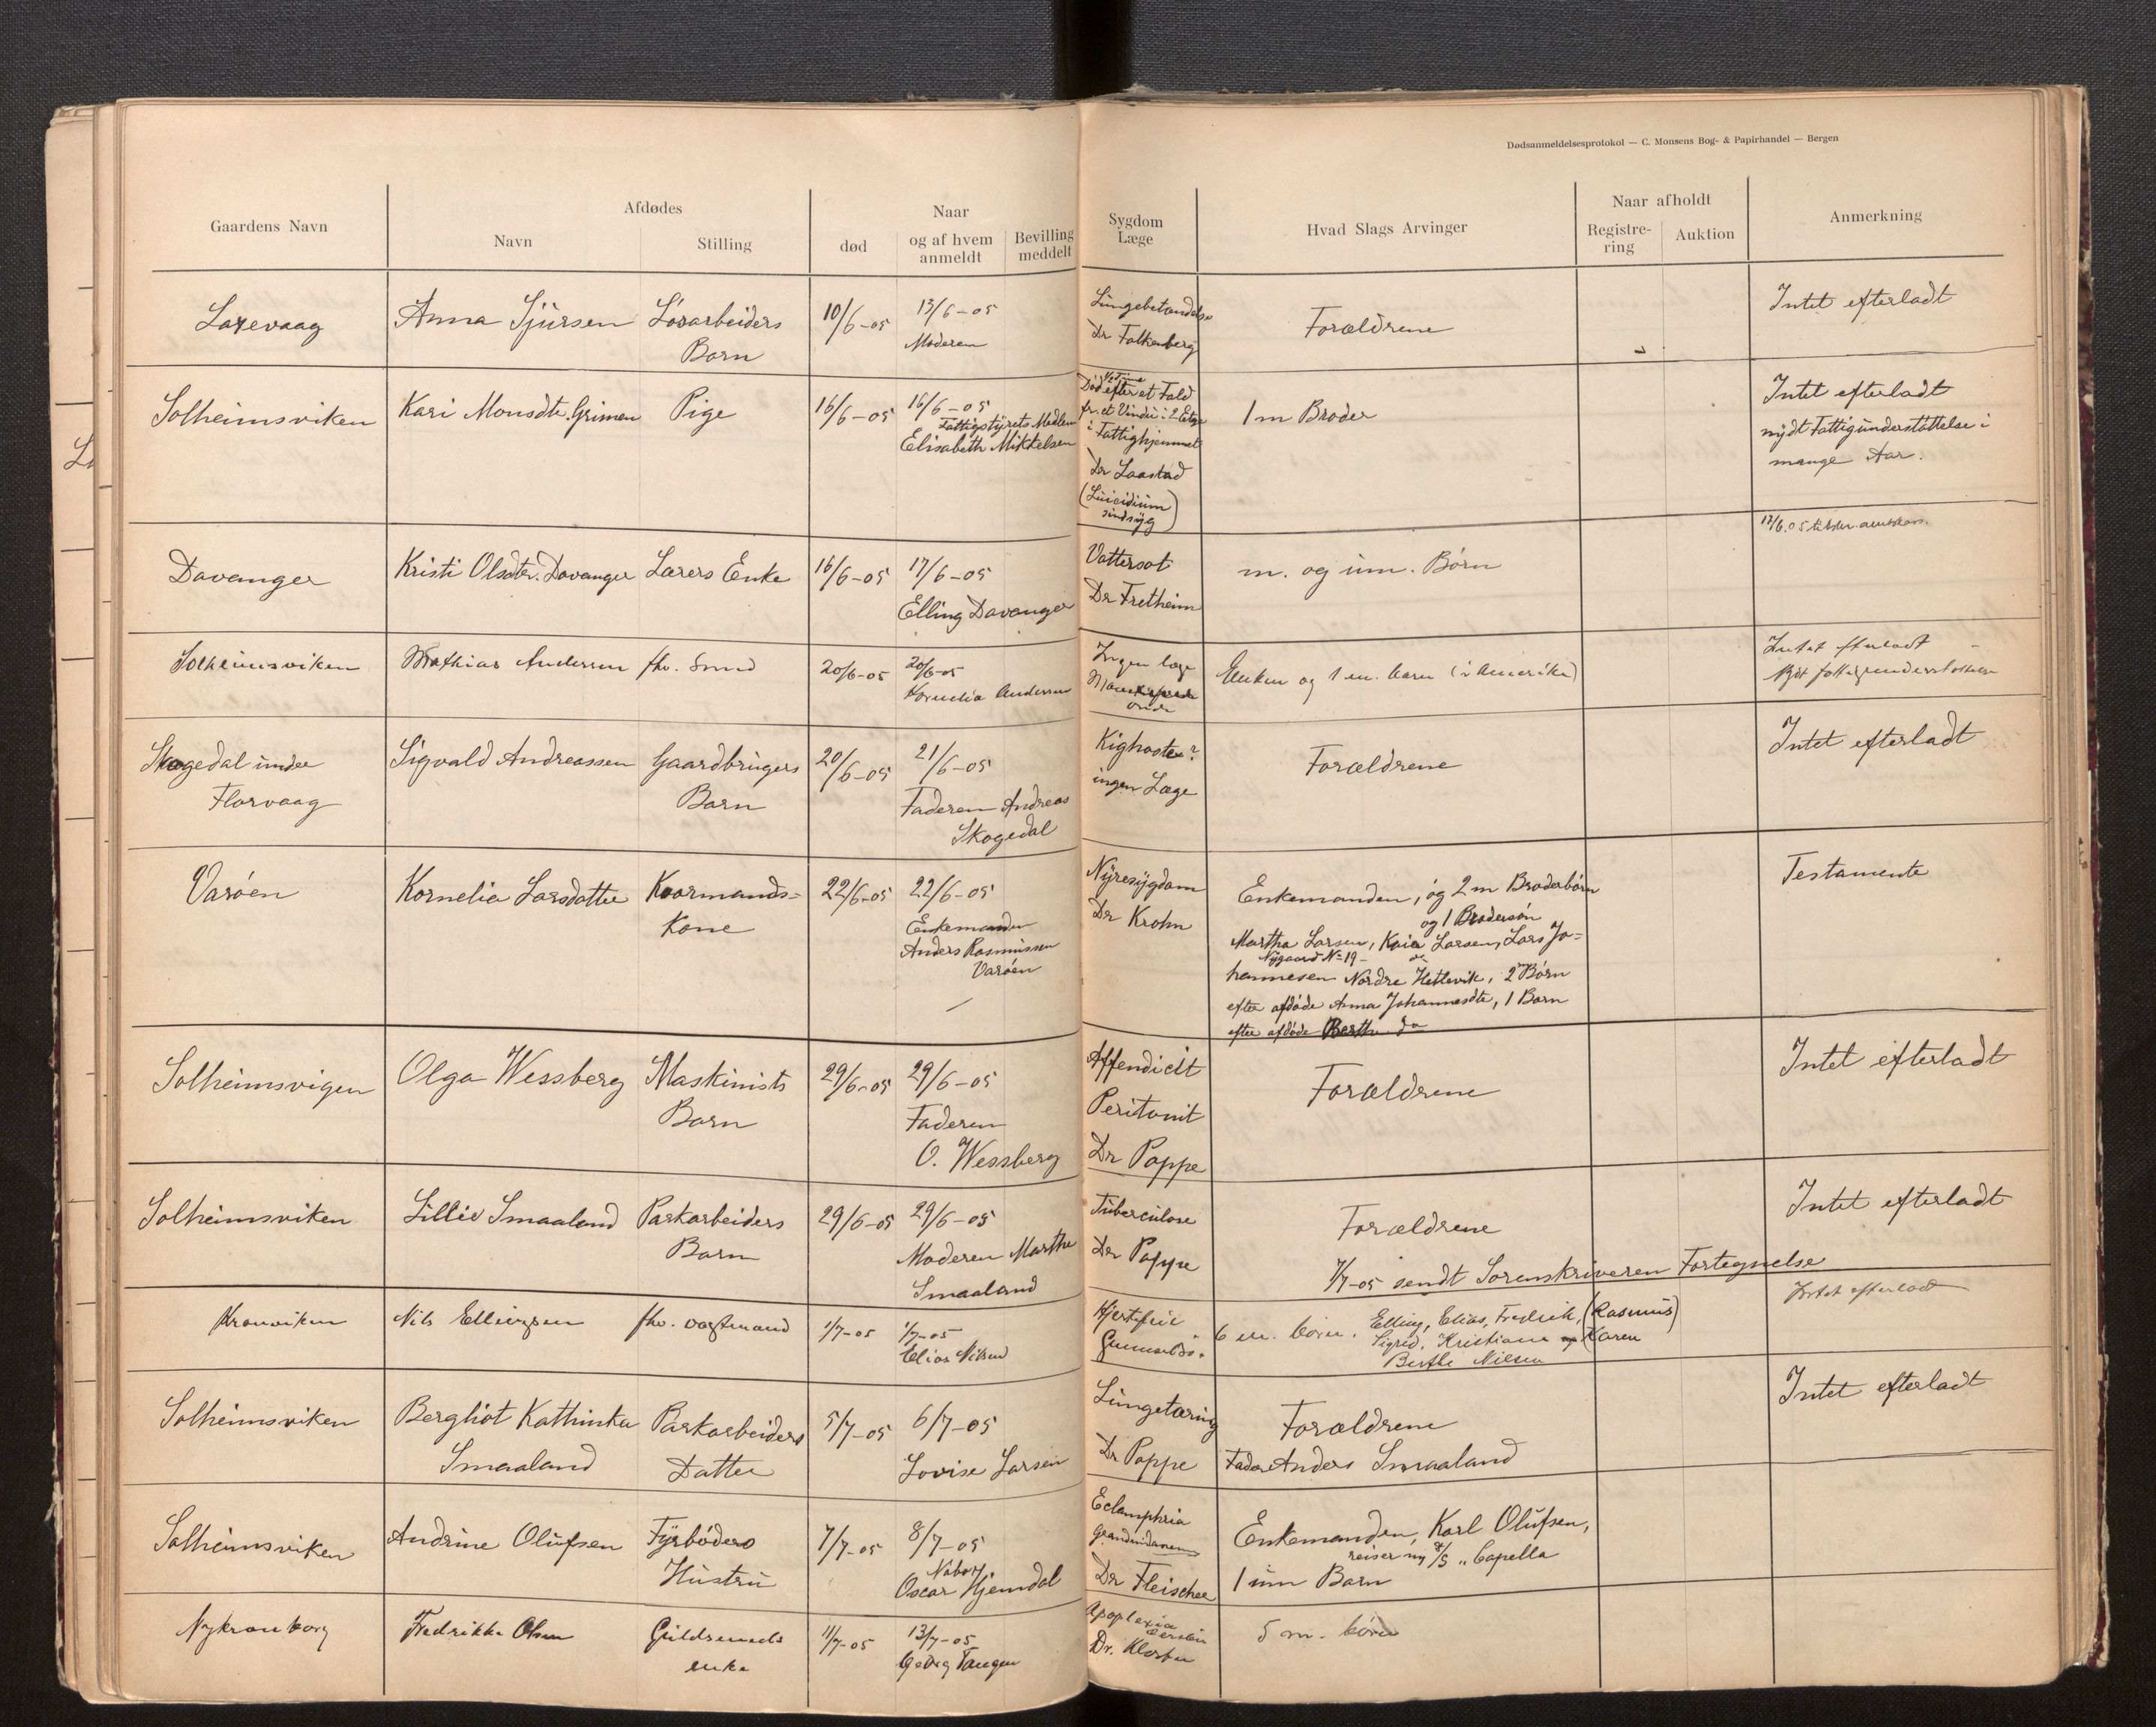 Dødsanmeldelsesprotokol — C. Monsens Bog- & Papirhandel — Bergen
Gaardens Navn
Afdødes
Navn
Stilling
Naar
død
og af hvem anmeldt
Bevilling meddelt
Sygdom
Læge
Hvad Slags Arvinger
Naar afholdt
Registre-
ring
Auktion
Anmerkning
Laxevaag
Anna Sjursen
Løsarbeiders
Barn
10/6-05
13/6-05
Moderen
Lungebetændelse
Dr Falkenberg
Forældrene
Intet efterladt
Solheimsviken
Kari Monsdtr. Grimen
Pige
16/6-05
16/6-05
Fattigstyrets Medlem
Elisabeth Mikkelsen
Død efter et Fald
fr. et Vindu i 2 Etage
i Fattighjemmet
Dr Laastad
(Suicidium
sindsyg)
1 m Broder
Intet efterladt
nydt Fattigunderstøttelse i
mange Aar.
Davanger
Kristi Olsdtr. Davanger
Lærers Enke
16/6-05
17/6-05
Elling Davanger
Vattersot
Dr Fretheim
m. og um. Børn
17/6.05
Solheimsviken
Mathias Andersen
fhv. Smed
20/6-05
20/6-05
Kornelia Andersen
Ingen læge
Enken og 1 m. barn (i Amerika)
Intet efterladt
Skogedal under
Florvaag
Sigvald Andreassen
Gaardbrugers
Barn
20/6-05
21/6-05
Faderen Andreas
Skogedal
Kighoste?
ingen Læge
Forældrene
Intet efterladt
Varøen
Kornelia Larsdatter
Kaarmands-
Kone
22/6-05
22/6-05
Enkemanden
Anders Rasmussen
Varøen
Nyresygdom
Dr Krohn
Enkemanden, og 2 m Broderbørn
og 1 Brodersøn
Martha Larsen, Kaia Larsen, Lars Jo-
Nygaard No 19-
hannesen Nordre Hetlevik, 2 Børn
efter afdøde Anna Johannesdtr, 1 Barn
efter afdøde Berthe do
Testamente
Solheimsvigen
Olga Wessberg
Maskinists
Barn
29/6-05
29/6-05
Faderen
O. Wessberg
Affendicit
Peritonit
Dr Poppe
Forældrene
Intet efterladt
Solheimsviken
Lillie Smaaland
Parkarbeiders
Barn
29/6-05
29/6-05
Moderen Marthe
Smaaland
Tuberculose
Dr Poppe
Forældrene
Intet efterladt
7/7-05 sendt Sorenskriveren Fortegnelse
Kronviken
Nils Ellingsen
fhv. vagtmand
1/7-05
1/7-05
Elias Nilsen
Hjertefeil
6 m. børn.
Elling, Elias, Fredrik, (Rasmus)
Sigrid, Kristiane og Karen
Berthe Nilsen
Intet efterladt
Solheimsviken
Bergliot Kathinka
Smaaland
Parkarbeiders
Datter
5/7-05
6/7-05
Lovise Larsen
Lungetæring
Dr Poppe
Forældrene
Fader Anders Smaaland
Intet efterladt
Solheimsviken
Andrine Olufsen
Fyrbøders
Hustru
7/7-05
8/7-05
Nabo
Oscar Hjemdal
Eclamphria
Dr Fleischer
Enkemanden, Karl Olufsen,
reiser m/ D/S "Capella
1 um Barn
Nykronborg
Fredrikke Olsen
Guldsmeds
enke
11/7-05
13/7-05
Georg Tangen
Apoplexia
cerebri
Dr. Kloster
5 m. børn